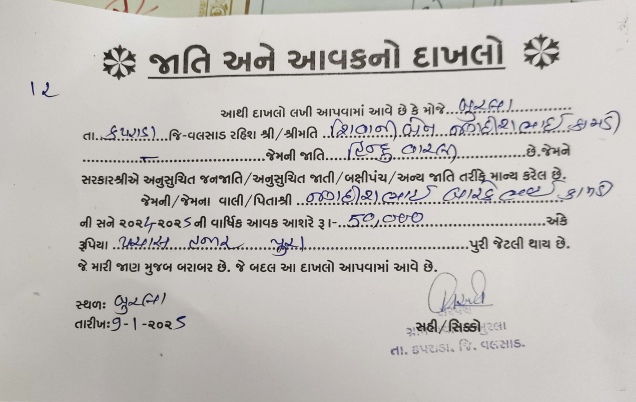 જાતિ અને આવકનો દાખલો
12
આથી દાખલો લખી આપવામાં આવે છે કે મોજે બુરલા
તા. કપરાડા જિ-વલસાડ રહિશ શ્રી/શ્રીમતિ શિવાની બેન જગદીશભાઈ કામડી
જેમની જાતિ હિન્દુ વારલી છે.જેમને
સરકારશ્રીએ અનુસુચિત જનજાતિ/અનુસુચિત જાતી/બક્ષીપંચ/અન્ય જાતિ તરીકે માન્ય કરેલ છે.
જેમની/જેમના વાલી/પિતાશ્રી જગદીશભાઈ કામડી
ની સને ૨૦૨૪-૨૦૨૫ ની વાર્ષિક આવક આશરે રૂા- 50,000 અંકે
રૂપિયા પચાસ હજાર પુરા પુરી જેટલી થાય છે.
જે મારી જાણ મુજબ બરાબર છે. જે બદલ આ દાખલો આપવામાં આવે છે.
સ્થળઃ બુરલા
તારીખઃ 9-1-૨૦૨૫
સહી/સિક્કો
તા. કપરાડા. જિ. વલસાડ.